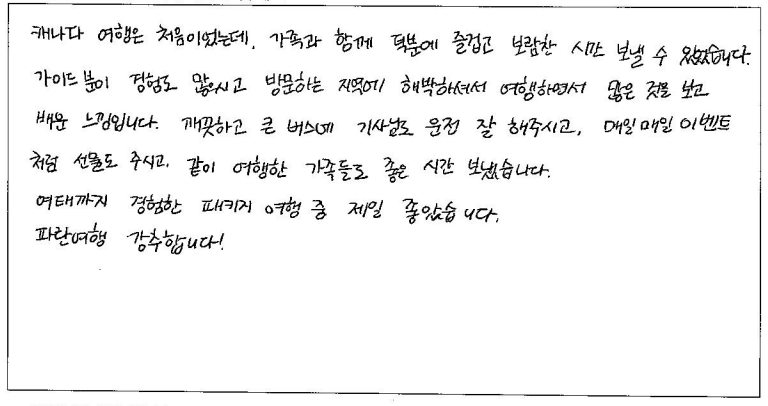 캐나다 여행은 처음이었는데, 가족과 함께 덕분에 즐겁고 보람찬 시간 보낼 수 있었습니다.
가이드분이 경험도 많으시고 방문하는 지역에 해박하셔서 여행하면서 많은 것을 보고
배운 느낌입니다. 깨끗하고 큰 버스에 기사님도 운전 잘 해주시고, 매일매일 이벤트
처럼 선물도 주시고, 같이 여행한 가족들도 좋은 시간 보냈습니다.
여태까지 경험한 패키지 여행 중 제일 좋았습니다.
파란여행 강추합니다!